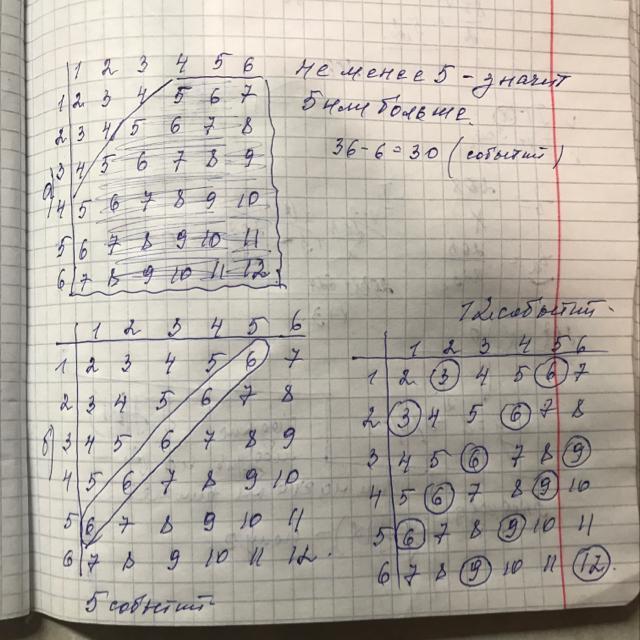 1 2 3 4 5 6
1 2 3 4 5 6 7
2 3 4 5 6 7 8
3 4 5 6 7 8 9
а)
4 5 6 7 8 9 10
5 6 7 8 9 10 11
6 7 8 9 10 11 12
не менее 5 - значит
5 или больше.
36-6=30 (событий)
1 2 3 4 5 6
1 2 3 4 5 6 7
2 3 4 5 6 7 8
б) 3 4 5 6 7 8 9
4 5 6 7 8 9 10
5 6 7 8 9 10 11
6 7 8 9 10 11 12.
5 событий
12 событий.
1 2 3 4 5 6
1 2 3 4 5 6 7
2 3 4 5 6 7 8
3 4 5 6 7 8 9
4 5 6 7 8 9 10
5 6 7 8 9 10 11
6 7 8 9 10 11 12.